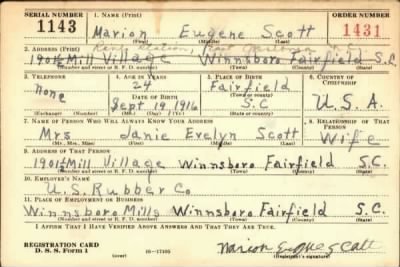 SERIAL NUMBER 1. NAME (Print) ORDER NUMBER
1143 Marion Eugene Scott 1431
(First) (Middle) (Last)
2. ADDRESS (Print)
1901½ Mill Village Winnsboro Fairfield S.C.
(Number and street or R. F. D. number) (Town) (County) (State)
3. TELEPHONE 4. AGE IN YEARS 5. PLACE OF BIRTH 6. COUNTRY OF CITIZENSHIP
None 24 Fairfield
DATE OF BIRTH (Town or county)
Sept 19 1916 S.C U.S.A.
(Exchange) (Number) (Mo.) (Day) (Yr.) (State or country)
7. NAME OF PERSON WHO WILL ALWAYS KNOW YOUR ADDRESS 8. RELATIONSHIP OF THAT PERSON
Mrs Janie Evelyn Scott Wife
(Mr., Mrs., Miss) (First) (Middle) (Last)
9. ADDRESS OF THAT PERSON
1901½ Mill Village Winnsboro Fairfield S.C.
(Number and street or R. F. D. number) (Town) (County) (State)
10. EMPLOYER'S NAME
U.S. Rubber Co
11. PLACE OF EMPLOYMENT OR BUSINESS
Winnsboro Mills Winnsboro Fairfield S.C.
(Number and street or R. F. D. number) (Town) (County) (State)
I AFFIRM THAT I HAVE VERIFIED ABOVE ANSWERS AND THAT THEY ARE TRUE.
REGISTRATION CARD
D. S. S. Form 1 (over) 16-17105 Marion Eugene Scott
(Registrant's signature)